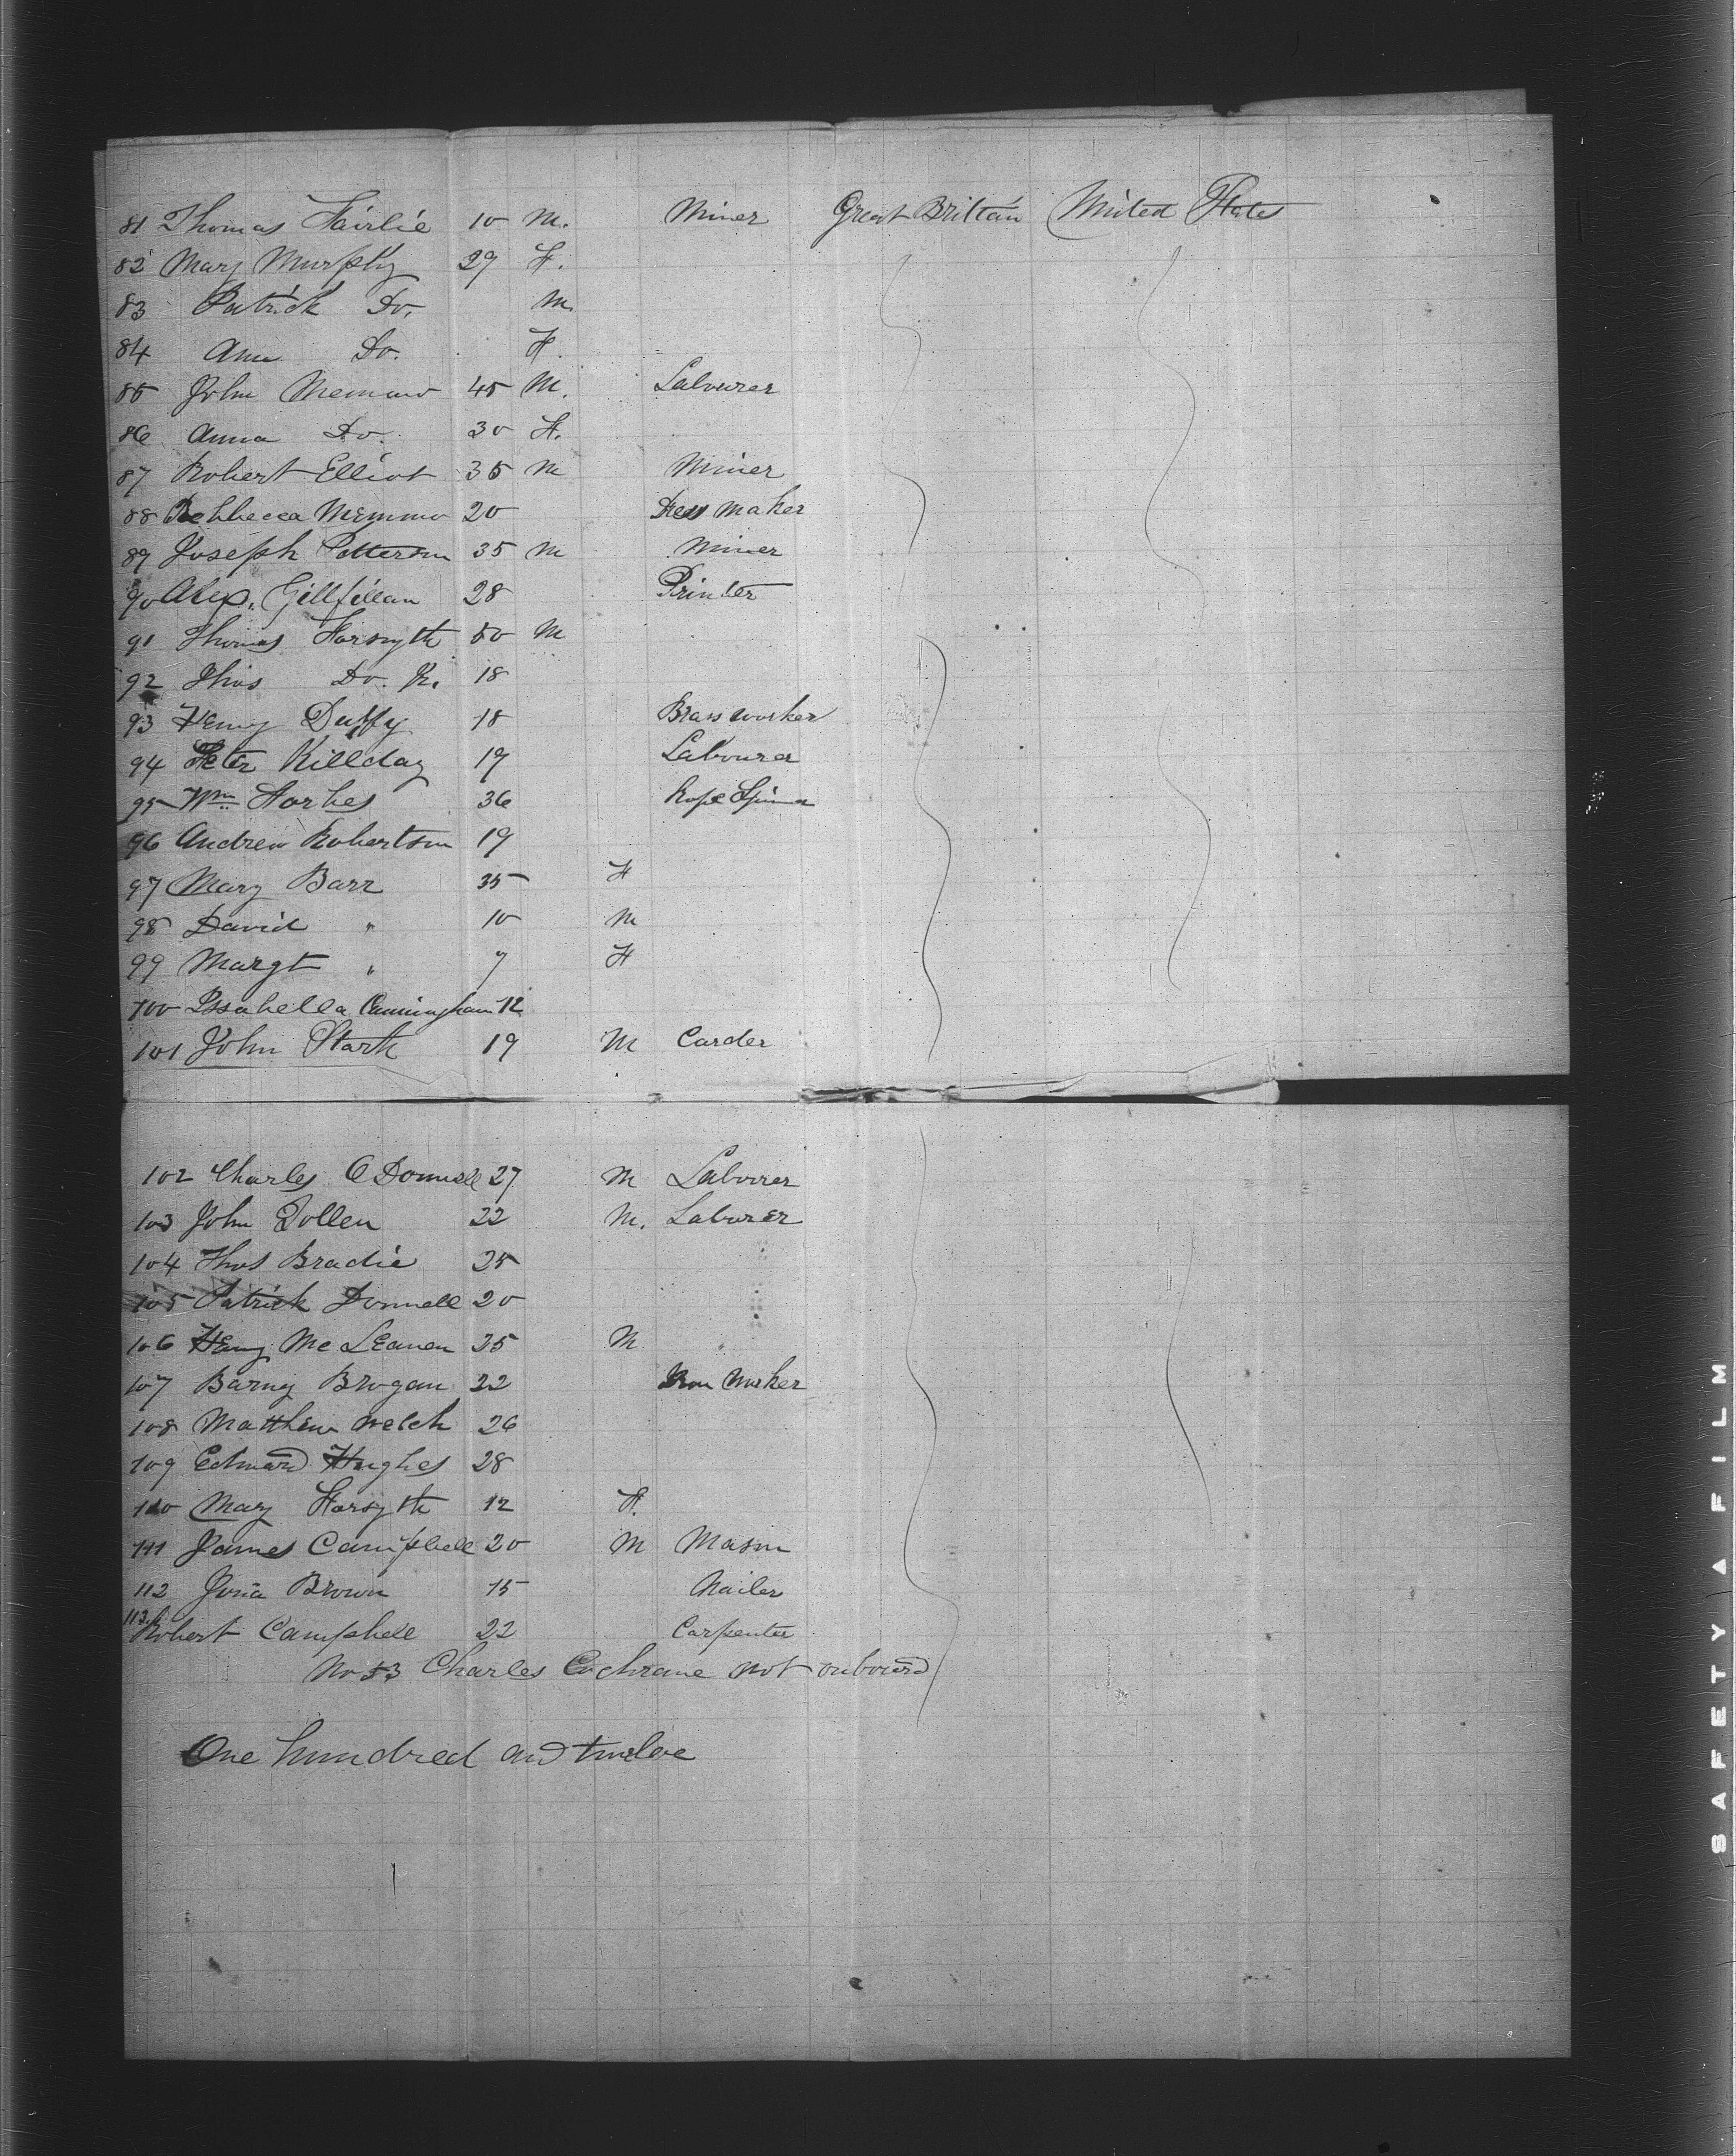 81 Thomas Fairlie 10 M. Miner Great Brittan United States
82 Mary Murphy 29 F.
83 Patrick Do. M.
84 Ann Do. F.
85 John 45 M. Labourer
86 Anna Do. 30 F.
87 Robert Elliot 35 M Miner
88 Rebbecca 20 Dress Maker
89 Joseph Patterson 35 M Miner
90 Alex. Gillfillan 28 Printer
91 Thomas Forsyth 50 M
92 Thos Do. Jr. 18
93 Henry Duffy 18 Brass worker
94 Peter Killday 19 Labourer
95 Wm Forbes 36 Rope Spinner
96 Andrew Robertson 19
97 Mary Barr 35 F
98 David " 10 M
99 Margt " 7 F
100 Issabella Cunningham 12
101 John Stark 19 M Carder
102 Charles O Donnell 27 M Labourer
103 John Dollen 22 M. Labourer
104 Thos Bradie 25
105 Patrick Donnell 20
106 Henry Mc Leanen 25 M
107 Barny Brogan 22 Iron Worker
108 Matthew Welch 26
109 Edward Hughes 28
110 Mary Forsyth 12 F.
111 James Campbell 20 M Mason
112 Brown 15 Nailer
113. Robert Campbell 22 Carpenter
No 53 Charles Cochrane not onboard
One hundred and twelve
SAFETY A FILM